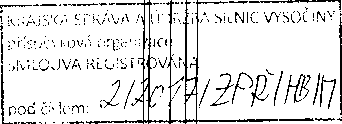 KRAJSKÁ SPRÁVA A ÚDRŽBA SILNIC VYSOČINY
příspěvková organizace
SMLOUVA REGISTROVÁNA
pod číslem: 2/2017/ZPŘ/HB/M